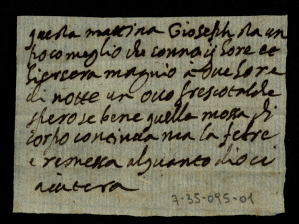 questa mattina Gioseph sta un
poco meglio che connai sore et
hiersera magnio à due hore
di notte un ovo fresco talche
spero se bene quella mossa di
corpo continua ma la febre
è remessa alquanto
7-35-095-01